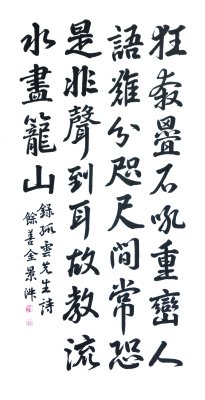 狂奔疊石吼重巒人
語難分咫尺間常恐
是非聲到耳故教流
水盡籠山
錄孤雲先生詩
餘善金景洙